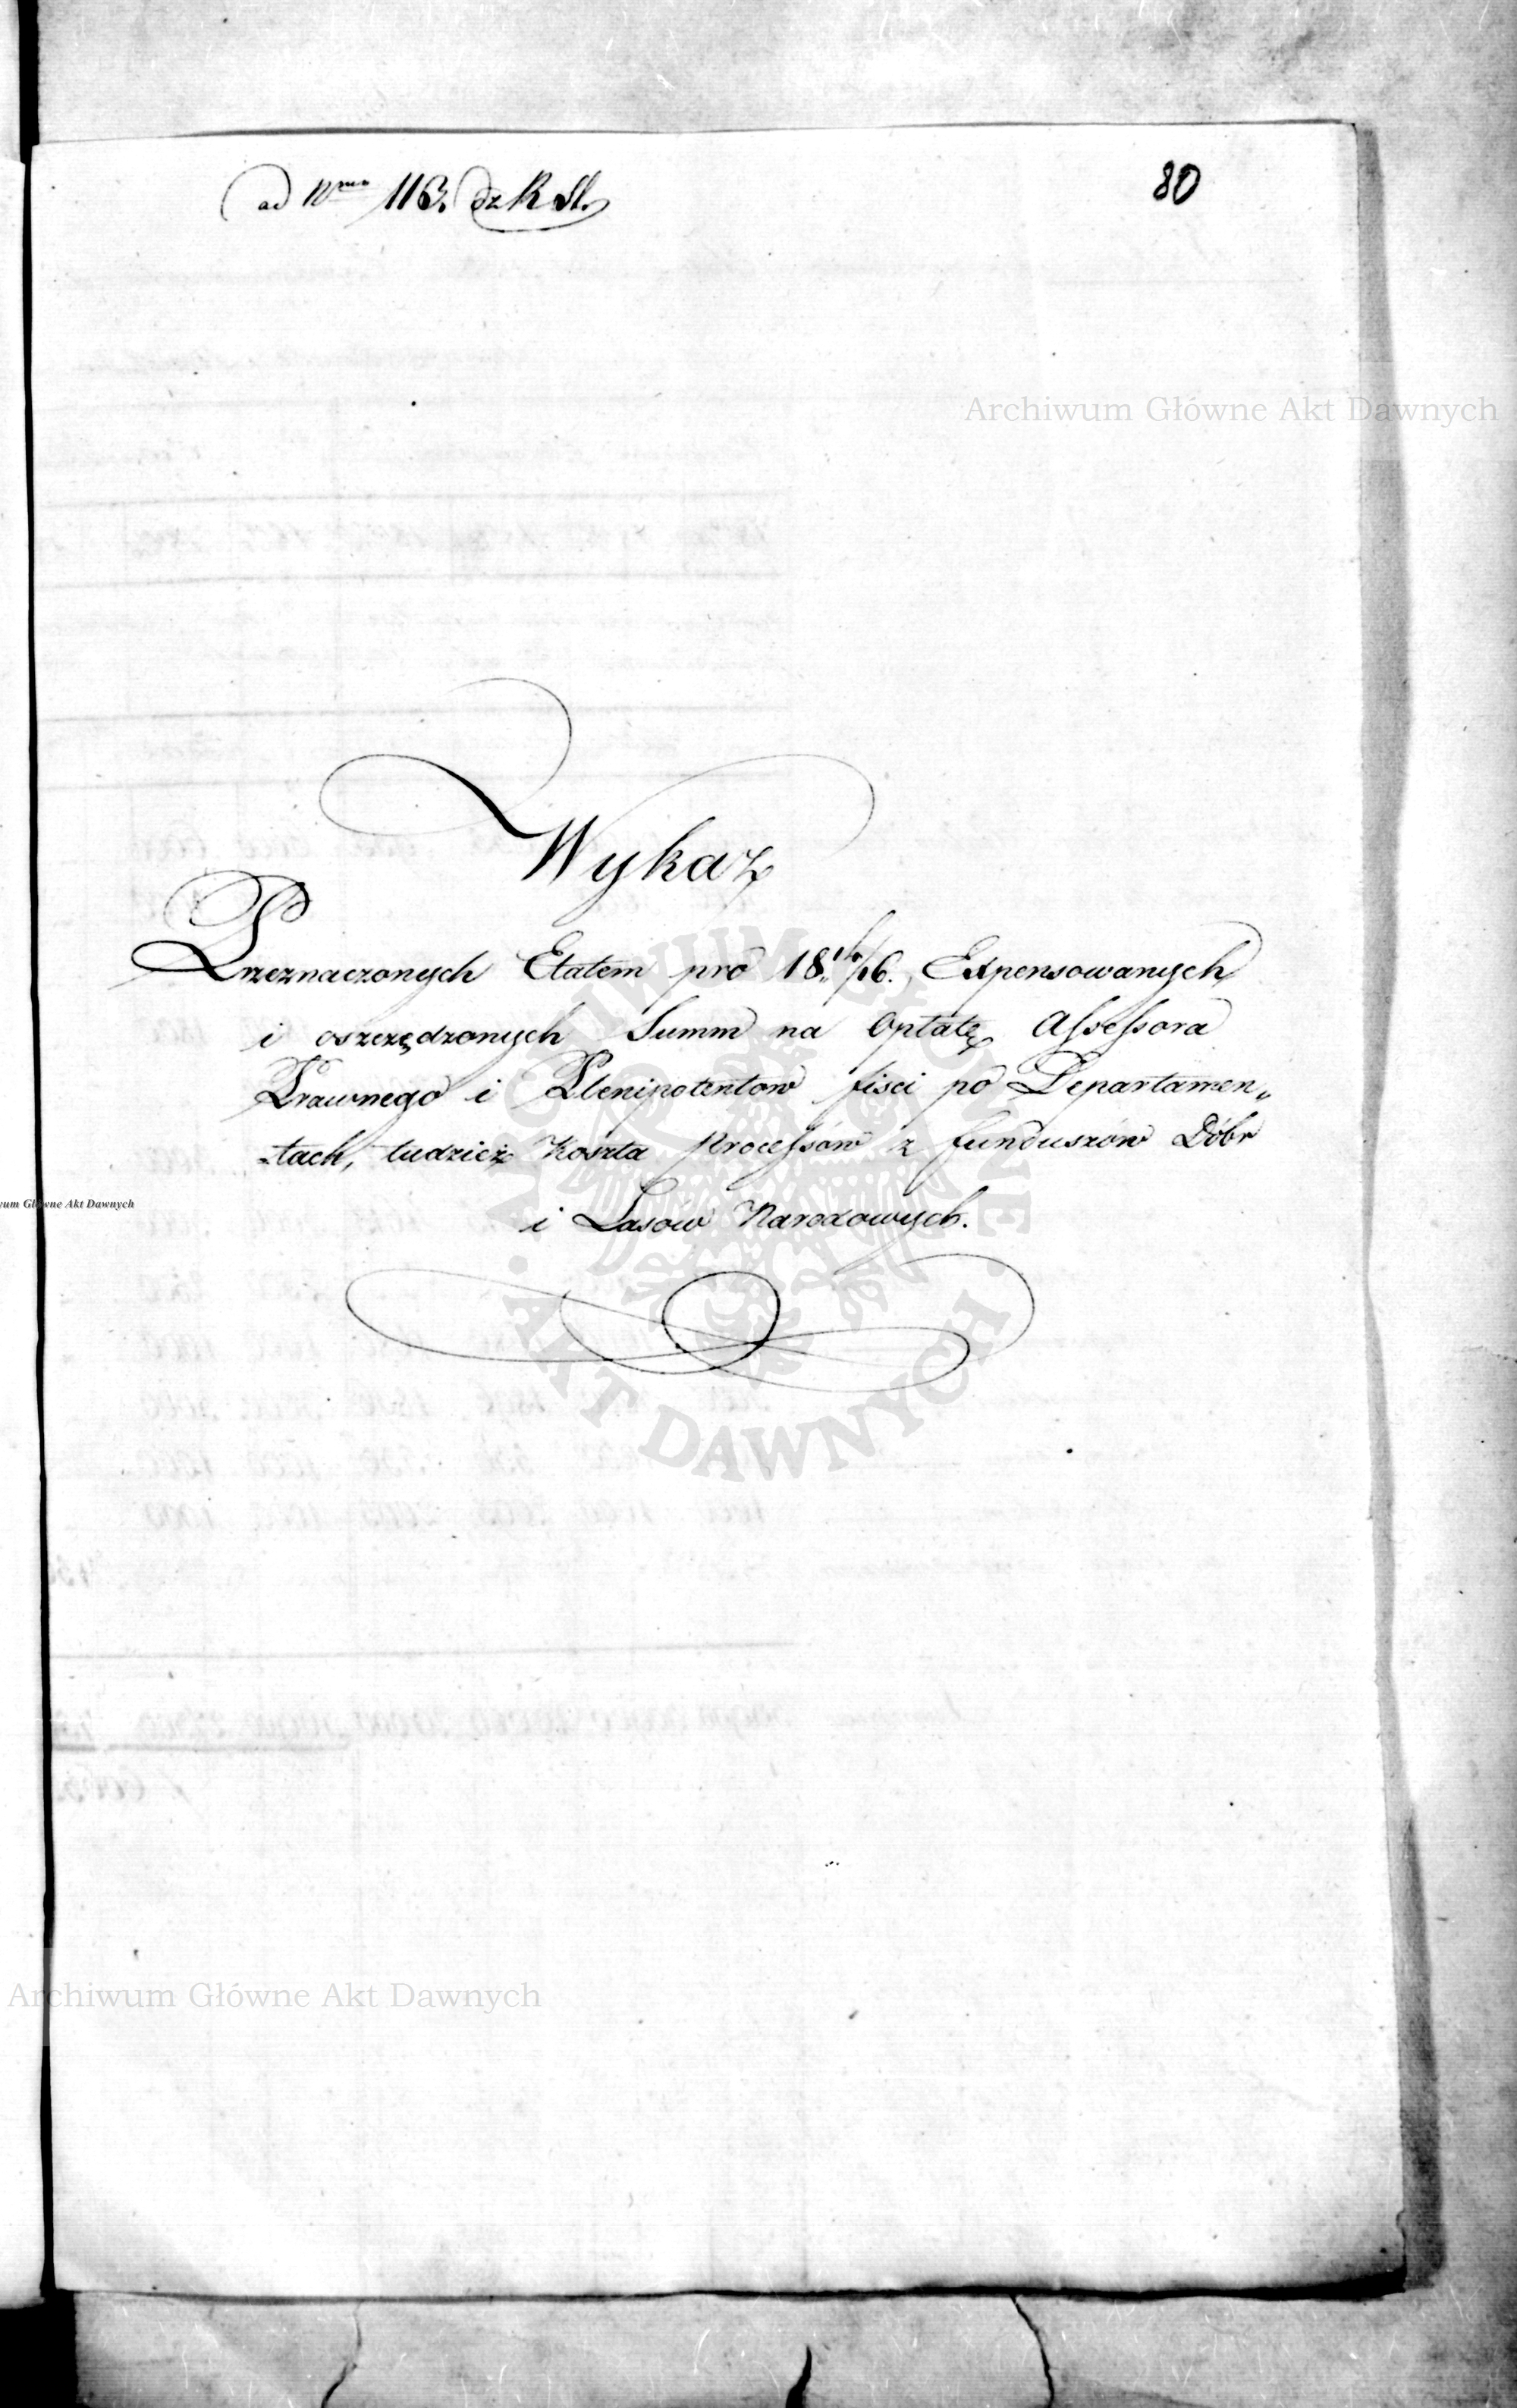 ad Nrum 116. dz R St.
80
Archiwum Główne Akt Dawnych
Wykaz
Przeznaczonych Etatem pro 1815/16. Expensowanych
i oszczędzonych Summ na Opłatę Assessora
Prawnego i Plenipotentow fisci po Departamen„
„tach, tudzież Koszta Processów z funduszów Dóbr
i Lasów Narodowych.
ARCHIWUM GŁÓWNE
AKT DAWNYCH
wum Główne Akt Dawnych
Archiwum Główne Akt Dawnych